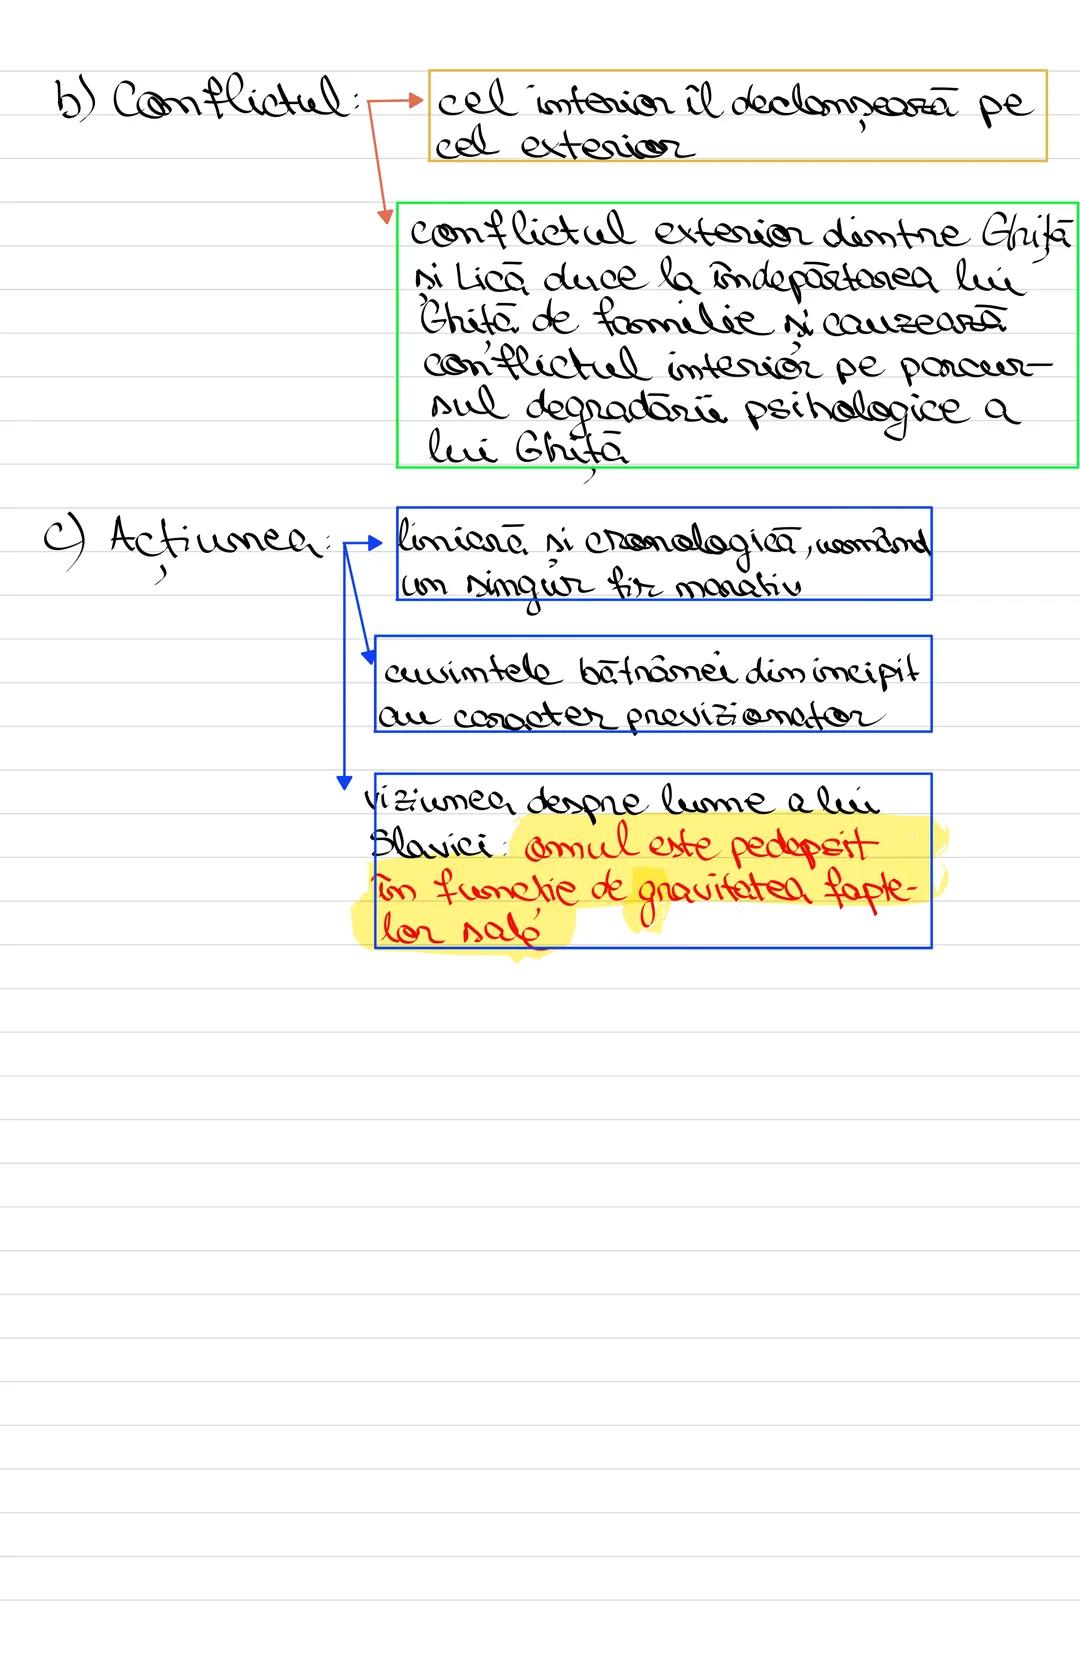 b) Conflictul: cel interior îl declanșează pe
cel exterior
conflictul exterior dintre Ghiță
și Lică duce la îndepărtarea lui
Ghiță de familie și cauzează
conflictul interior pe parcur-
sul degradării psihologice a
lui Ghiță
c) Acțiunea: liniară și cronologică, urmând
un singur fir narativ
cuvintele bătrânei din incipit
au caracter previzionator
viziunea despre lume a lui
Slavici: omul este pedepsit
în funcție de gravitatea fapte-
lor sale